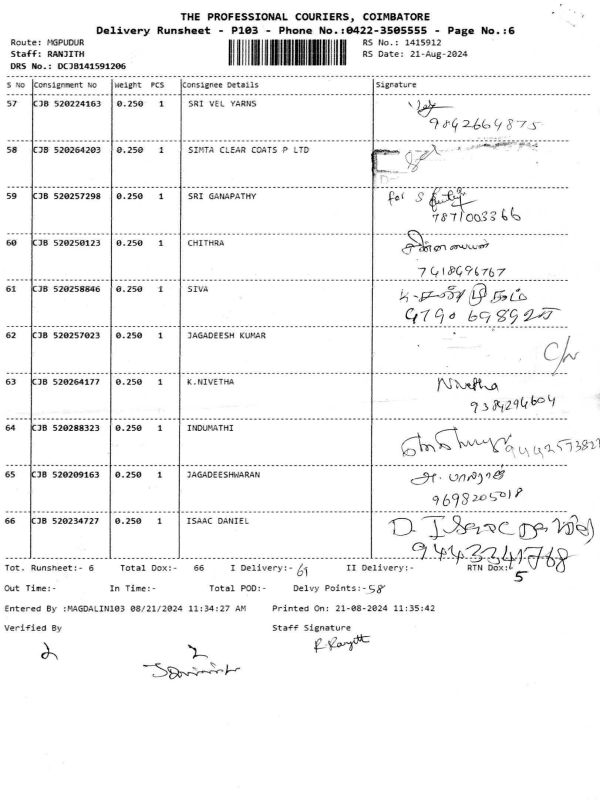 THE PROFESSIONAL COURIERS, COIMBATORE
Delivery Runsheet - P103 - Phone No.:0422-3505555 - Page No.:6
Route: MGPUDUR RS No.: 1415912
Staff: RANJITH RS Date: 21-Aug-2024
DRS No.: DCJB141591206
S No Consignment No Weight PCS Consignee Details Signature
57 CJB 520224163 0.250 1 SRI VEL YARNS
9842664875
58 CJB 520264203 0.250 1 SIMTA CLEAR COATS P LTD
59 CJB 520257298 0.250 1 SRI GANAPATHY for S
7871003366
60 CJB 520250123 0.250 1 CHITHRA
7418496767
61 CJB 520258846 0.250 1 SIVA
62 CJB 520257023 0.250 1 JAGADEESH KUMAR
63 CJB 520264177 0.250 1 K.NIVETHA Nivetha
9384294604
64 CJB 520288323 0.250 1 INDUMATHI
65 CJB 520209163 0.250 1 JAGADEESHWARAN
9698205018
66 CJB 520234727 0.250 1 ISAAC DANIEL D. Isaac Daniel
9443341768
Tot. Runsheet:- 6 Total Dox:- 66 I Delivery:- 61 II Delivery:- RTN Dox:- 5
Out Time:- In Time:- Total POD:- Delvy Points:- 58
Entered By :MAGDALIN103 08/21/2024 11:34:27 AM Printed On: 21-08-2024 11:35:42
Verified By Staff Signature
R. Ranjith